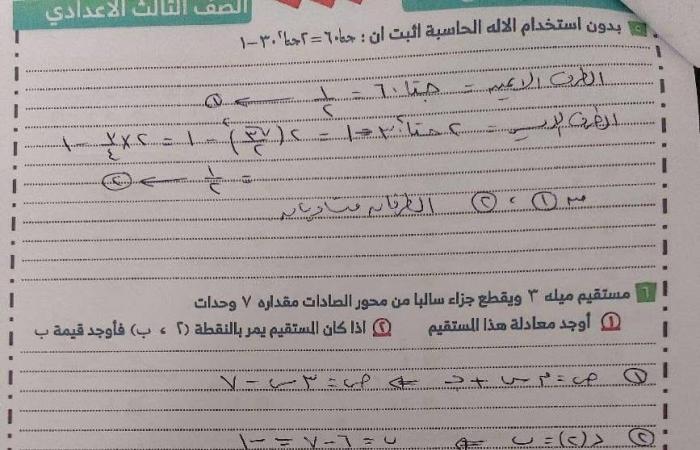 الصف الثالث الاعدادي
٥ بدون استخدام الاله الحاسبة اثبت ان : حتا ٦٠ = ٢ حتا٢ ٣٠ - ١
الطرف الايمن = حتا ٦٠ = ١/٢ ← ①
الطرف الايسر = ٢ حتا٢ ٣٠ - ١ = ٢(√٣/٢)٢ - ١ = ٢×٣/٤ - ١
= ١/٢ ← ②
من ① ، ② الطرفان متساويان
٦ مستقيم ميله ٣ ويقطع جزاء سالبا من محور الصادات مقداره ٧ وحدات
① أوجد معادلة هذا الستقيم ② اذا كان الستقيم يمر بالنقطة (٢ ، ب) فأوجد قيمة ب
① ص = م س + جـ ⇐ ص = ٣س - ٧
② د(٢) = ب ⇐ ب = ٦ - ٧ = -١